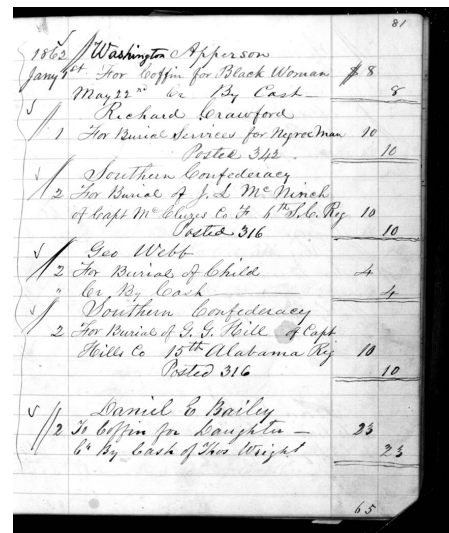 81
1862 Washington Apperson
Jany 1st For Coffin for Black Woman $ 8
May 22nd Cr By Cash — 8
Richard Crawford
1 For Burial Services for Negroe Man 10
Posted 342. 10
Southern Confederacy
2 For Burial of J. S McNinch
of Capt McCluzes Co F 6th S.C. Reg 10
Posted 316 10
Geo Webb
2 For Burial of Child 4
" Cr By Cash 4
Southern Confederacy
2 For Burial of G. G. Hill of Capt
Hills Co 15th Alabama Rig 10
Posted 316 10
1 Daniel E Bailey
2 To Coffin for Daughter — 23
Cr By Cash of Thos Wright 23
65